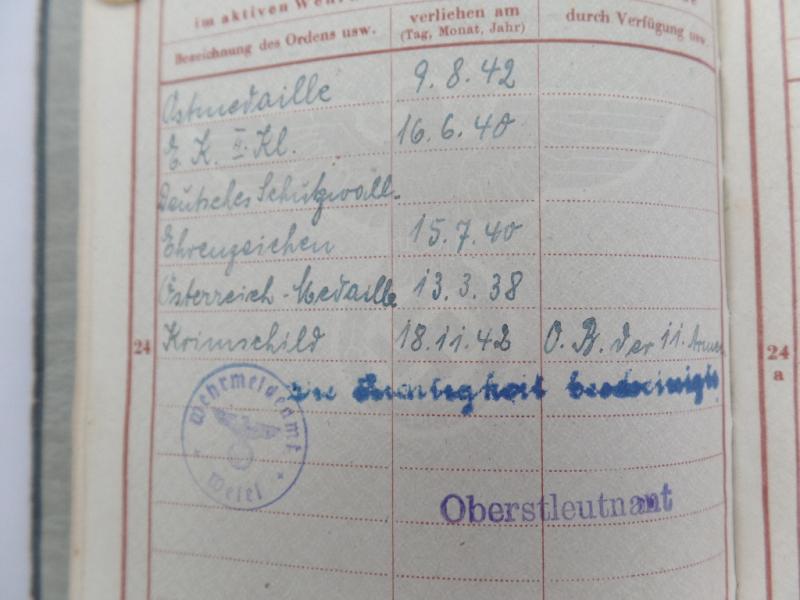 im aktiven
verliehen am
durch Verfügung usw.
Bezeichnung des Ordens usw.
(Tag, Monat, Jahr)
Ostmedaille 9. 8. 42
E. K. II. Kl. 16. 6. 40
Deutsches Schutzwall-
Ehrenzeichen 15. 7. 40
Österreich-Medaille 13. 3. 38
24 Krimschild 18. 11. 42 O. B. der 11. Armee
24
a
Richtigkeit bescheinigt
Wehrmeldeamt
Wesel
Oberstleutnant